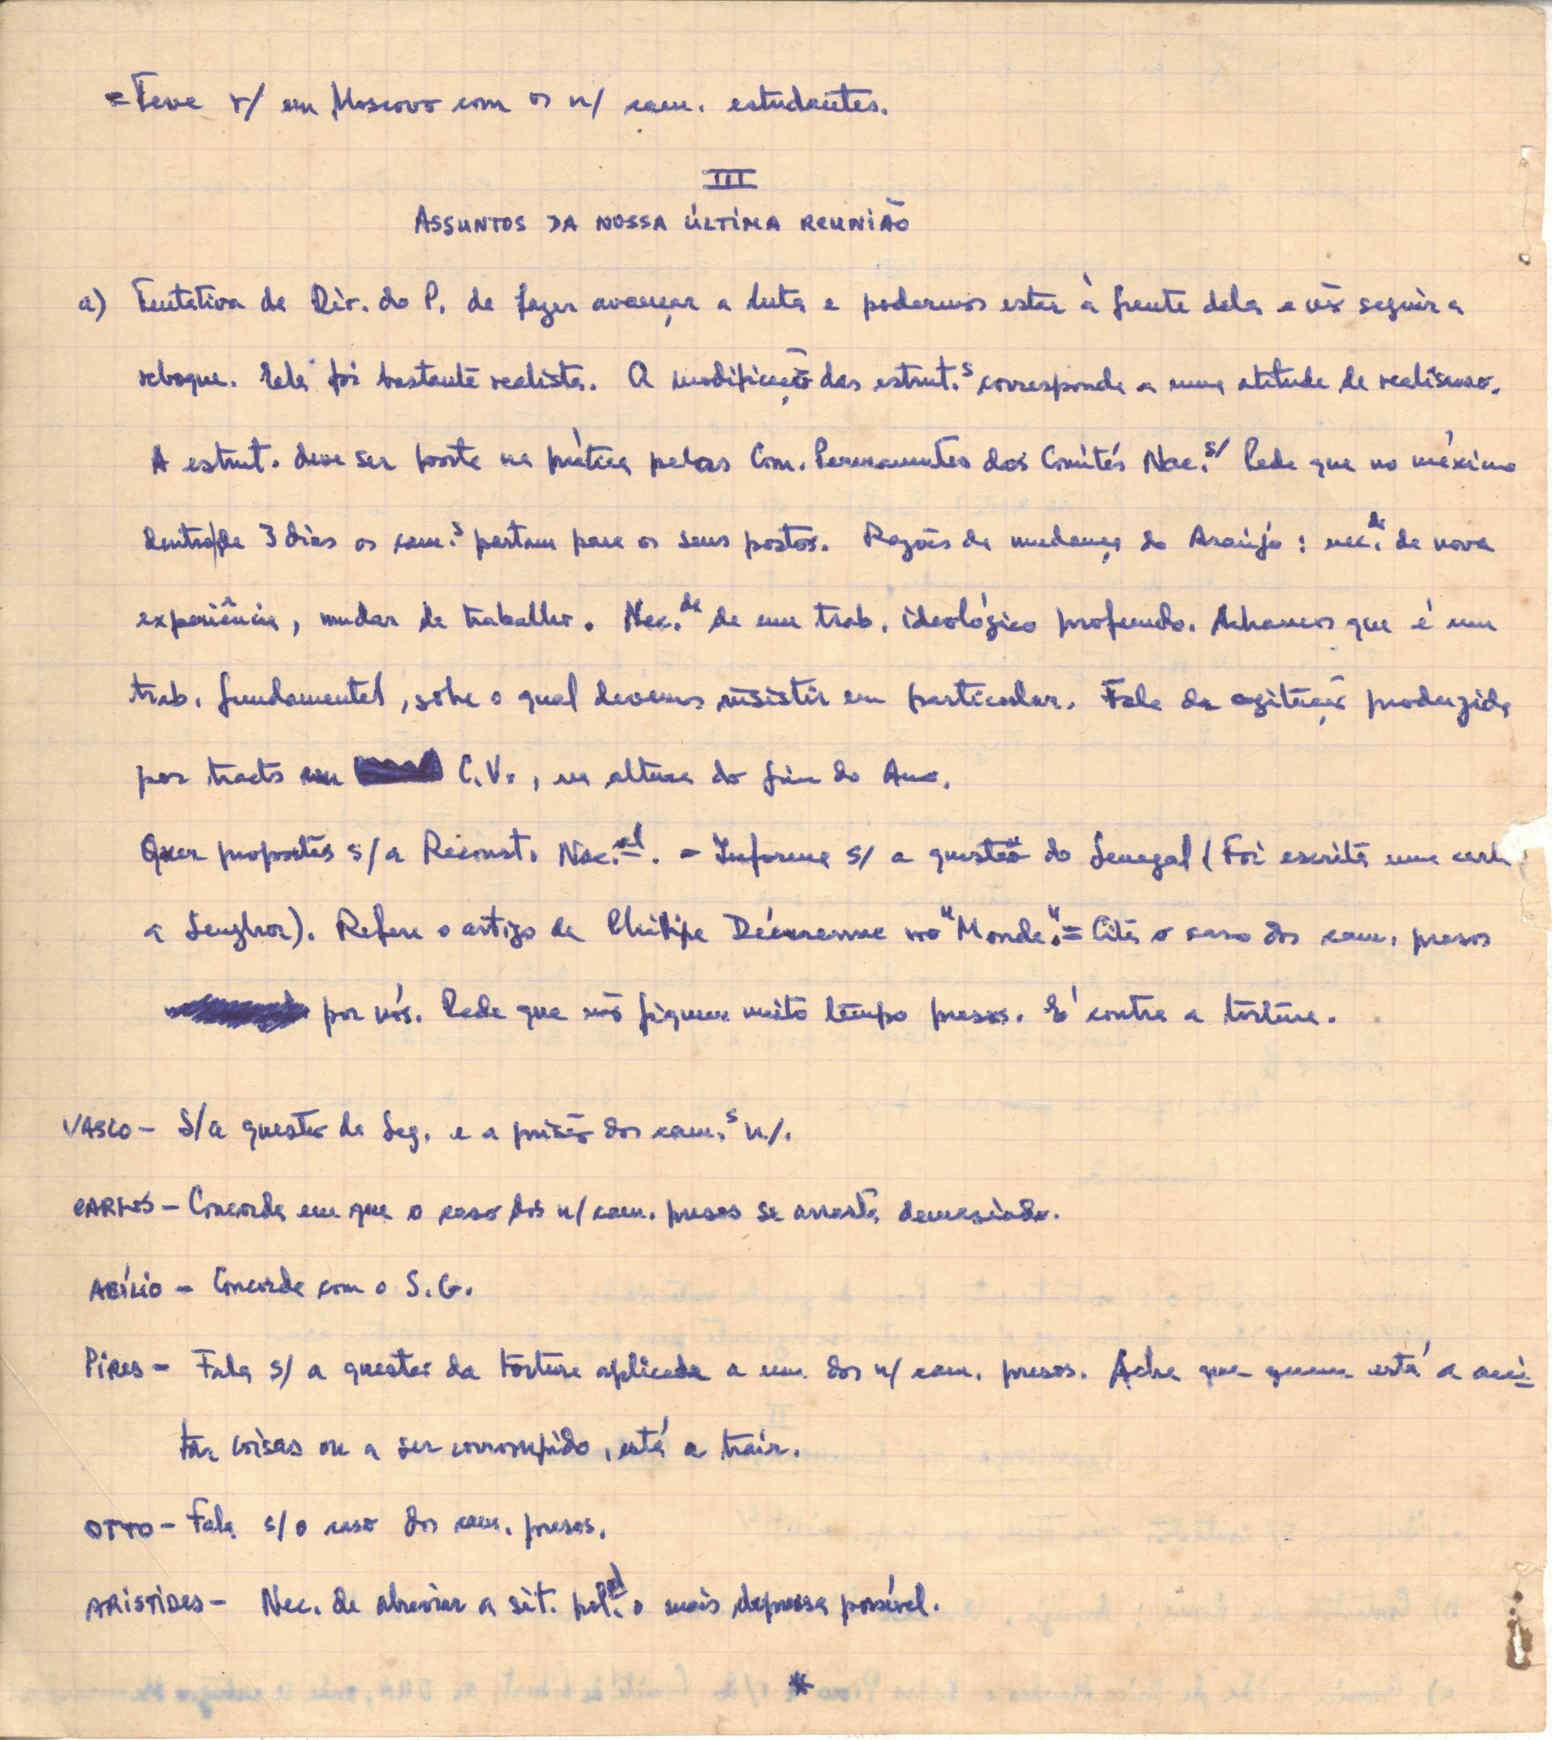 = Teve r/ em Moscovo com os n/ cam. estudantes.
III
ASSUNTOS DA NOSSA ÚLTIMA REUNIÃO
a) Tentativa da Dir. do P. de fazer avançar a luta e podermos estar à frente dela e não seguir a
reboque. Ela foi bastante realista. A modificação das estrut.s corresponde a uma atitude de realismo.
A estrut. deve ser posta na prática pelas Com. Permanentes dos Comités Nac.s/ Pede que no máximo
dentro de 3 dias os cam.s partam para os seus postos. Razões da mudança do Araújo: nec.de de nova
experiência, mudar de trabalho. Nec.de de um trab. ideológico profundo. Achamos que é um
trab. fundamental, sobre o qual devemos insistir em particular. Fala da agitação produzida
por tracts em C.V., na altura do fim do Ano.
Quer propostas s/ a Reconst. Nac.al. = Informa s/ a questão do Senegal (Foi escrita uma carta
a Senghor). Refere o artigo de Philipe Décraene no "Monde". = Cita o caso dos cam. presos
por nós. Pede que não fiquem muito tempo presos. É contra a tortura.
VASCO - S/ a questão da Seg. e a prisão dos cam.s n/.
CARLOS - Concorda em que o caso dos n/ cam. presos se arrasta demasiado.
ABÍLIO - Concorda com o S.G.
PIRES - Fala s/ a questão da tortura aplicada a um dos n/ cam. presos. Acha que quem está a acei-
tar coisas ou a ser corrompido, está a trair.
OTTO - Fala s/ o caso dos cam. presos.
ARISTIDES - Nec. de abreviar a sit. o mais depressa possível.
*